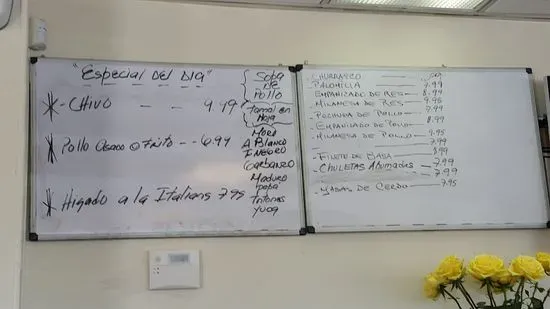 "Especial Del Dia"
- CHIVO - - 9.99
Pollo Asado o Frito -- 6.99
Higado a la Italiana 7.95
Sopa
de
Pollo
Tamal en
Hoja
Moro
A. Blanco
F. NEGRO
Garbanzo
Maduro
papa
Tostones
Yuca
- CHURRASCO
- PALOMILLA 7.99
- EMPANIZADO DE RES - 8.99
- MILANESA DE RES - 9.95
- PECHUGA DE POLLO - 7.99
- EMPANIZADO DE POLLO - 8.99
- MILANESA DE POLLO - 9.95
7.99
- FILETE DE BASA - 8.99
- CHULETAS Ahumadas - 7.99
7.99
- MASAS DE CERDO - 7.95